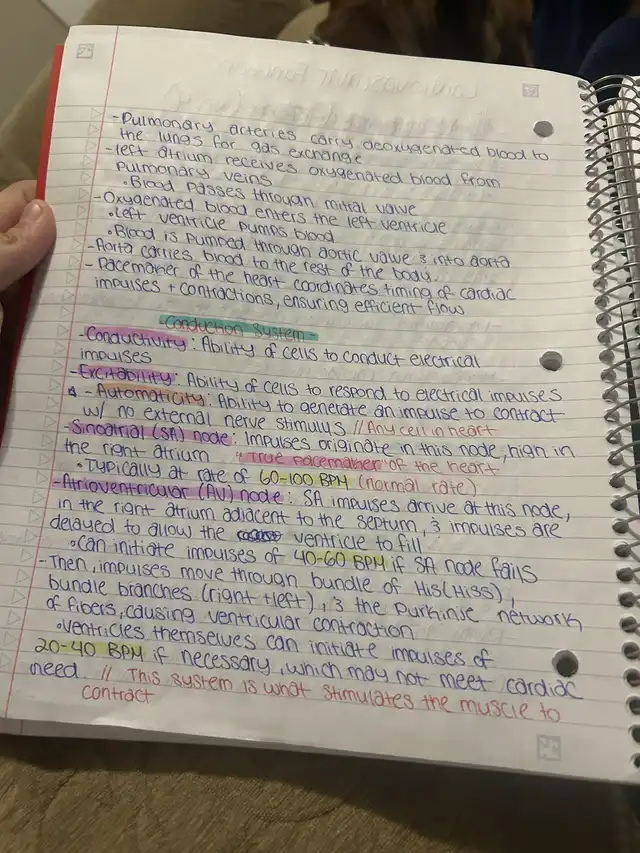 -Pulmonary arteries carry deoxygenated blood to
the lungs for gas exchange
-left atrium receives oxygenated blood from
pulmonary veins
•Blood passes through mitral valve
-Oxygenated blood enters the left ventricle
•Left ventricle pumps blood
•Blood is pumped through aortic valve & into aorta
-Aorta carries blood to the rest of the body
-Pacemaker of the heart coordinates timing of cardiac
impulses + contractions, ensuring efficient flow
-Conduction System-
-Conductivity: Ability of cells to conduct electrical
impulses
-Excitability: Ability of cells to respond to electrical impulses
-Automaticity: Ability to generate an impulse to contract
w/ no external nerve stimulus //Any cell in heart
-Sinoatrial (SA) node: Impulses originate in this node, high in
the right atrium "True pacemaker of the heart
•Typically at rate of 60-100 BPM (normal rate)
-Atrioventricular (AV) node: SA impulses arrive at this node,
in the right atrium adjacent to the septum, & impulses are
delayed to allow the ventricle to fill
•Can initiate impulses of 40-60 BPM if SA node fails
-Then, impulses move through bundle of His(Hiss),
bundle branches (right + left), & the Purkinje network
of fibers, causing ventricular contraction
•ventricles themselves can initiate impulses of
20-40 BPM if necessary, which may not meet cardiac
need // This system is what stimulates the muscle to
contract